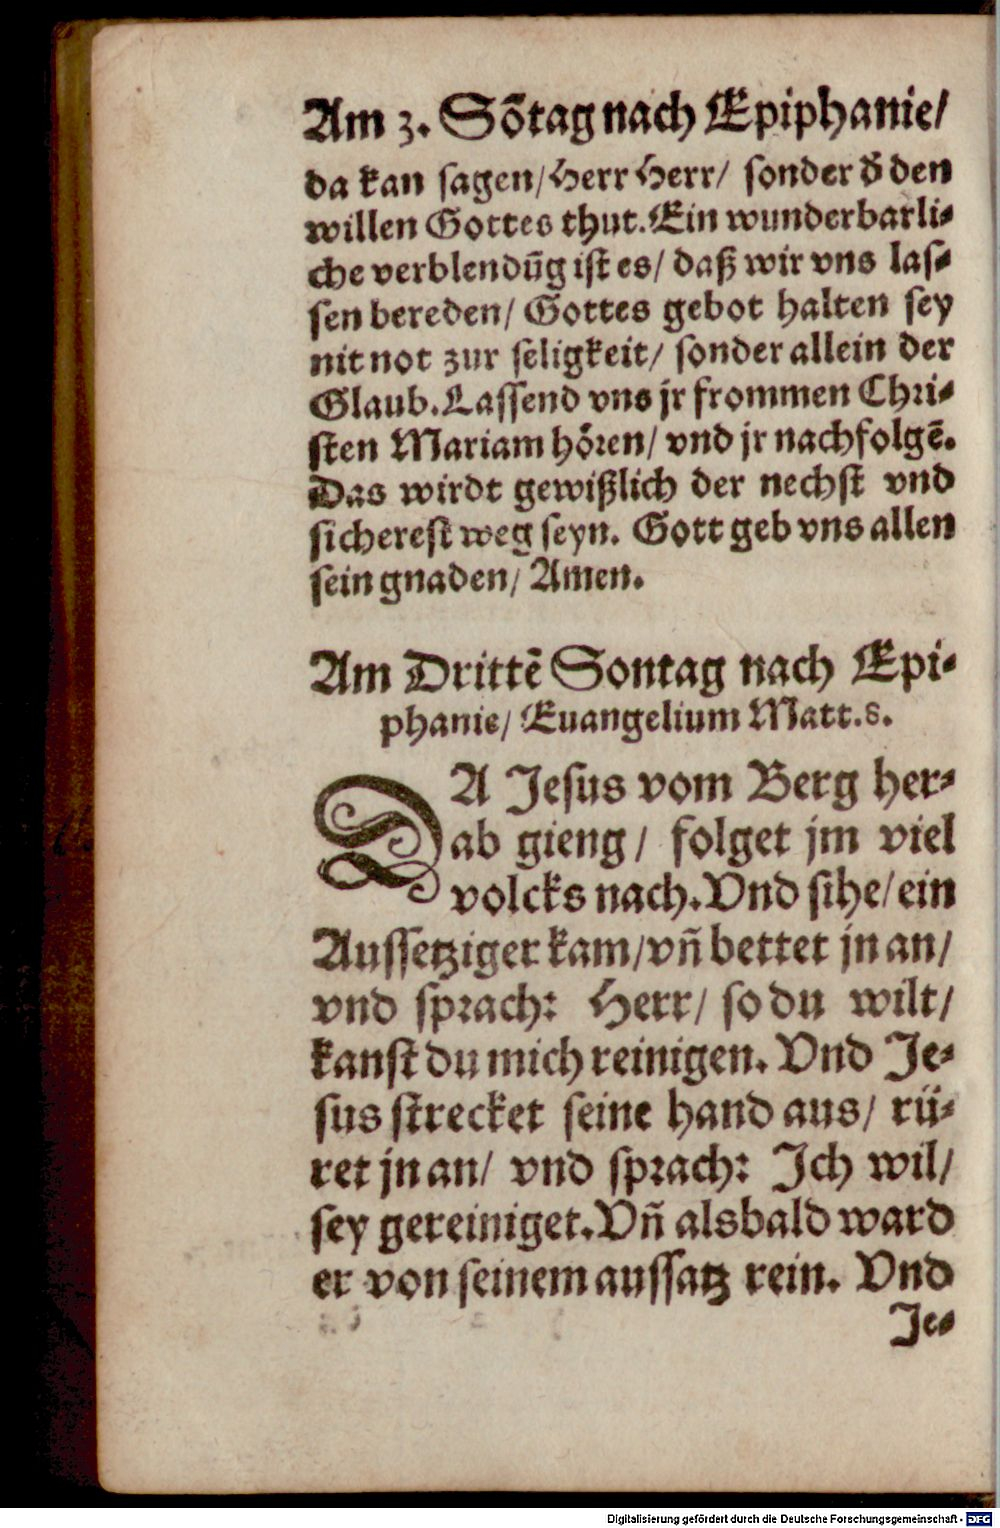 Am 3. Sõtag nach Epiphanie/
da kan sagen/ Herr Herr/ sonder d̃ den
willen Gottes thut. Ein wunderbarli-
che verblendũg ist es/ daß wir vns las-
sen bereden/ Gottes gebot halten sey
nit not zur seligkeit/ sonder allein der
Glaub. Lassend vns jr frommen Chri-
sten Mariam hören/ vnd jr nachfolgẽ.
Das wirdt gewißlich der nechst vnd
sicherest weg seyn. Gott geb vns allen
sein gnaden/ Amen.
Am Drittẽ Sontag nach Epi-
phanie/ Euangelium Matt.8.
DA Jesus vom Berg her-
ab gieng/ folget jm viel
volcks nach. Vnd sihe/ ein
Aussetziger kam/ vñ bettet jn an/
vnd sprach: Herr/ so du wilt/
kanst du mich reinigen. Vnd Je-
sus strecket seine hand aus/ rü-
ret jn an/ vnd sprach: Ich wil/
sey gereiniget. Vñ alsbald ward
er von seinem aussatz rein. Vnd
Je-
Digitalisierung gefördert durch die Deutsche Forschungsgemeinschaft - DFG